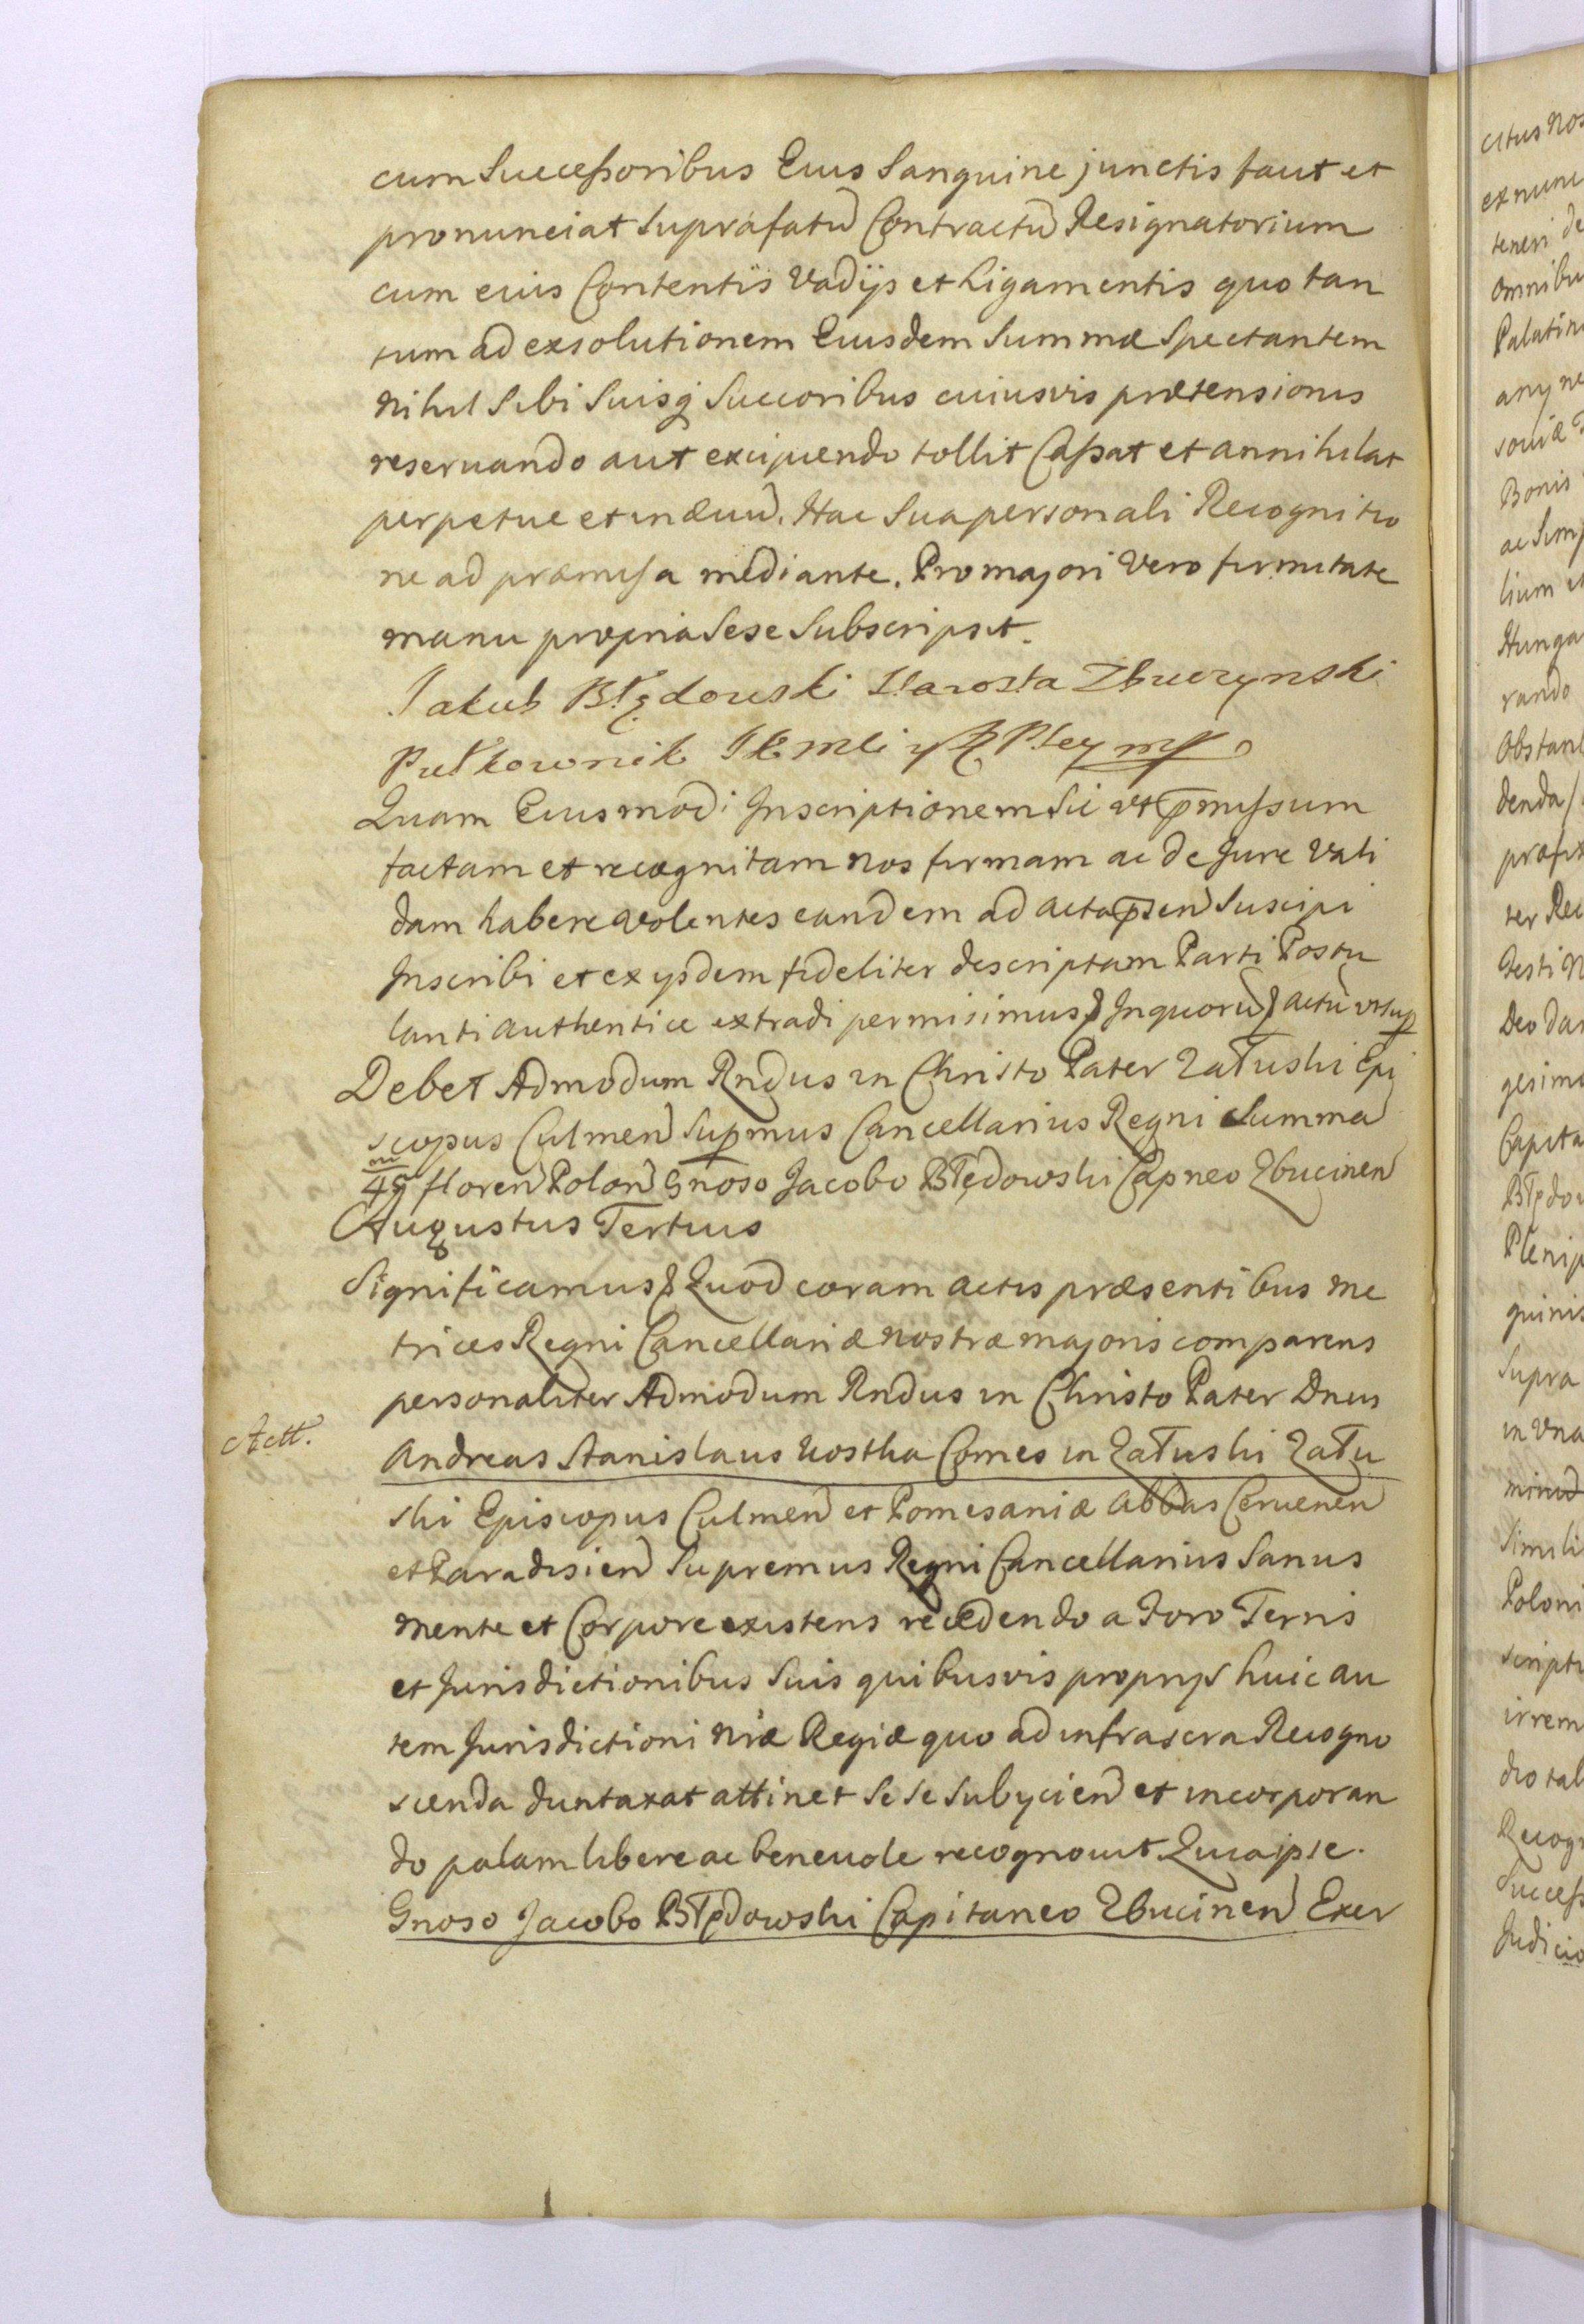 cum Successoribus Eius Sanguine junctis faut et
pronunciat suprafatu Contractu Resignatorium
cum eius Contentis Vadijs et Ligamentis quo tan
tum ad exsolutionem Eiusdem Summæ Spectantem
Nihil Sibi Suisq Succoribus cuiusvis prætensionis
reseruando aut excipiendo tollit Cassat et annihilat
perpetue et in æuu. Hac Sua personali Recognitio
ne ad præmissa mediante. Pro majori Vero firmitate
manu propria Sese Subscripsit.
Jakub Błędowski Starosta Zbuczynski
Pułkownik JKMci
Quam Eiusmodi Inscriptionem Sic ut pmissum
factam et recognitam nos firmam ac de Jure Vali
dam habere volentes eandem ad acta psen Suscipi
Inscribi et ex ysdem fideliter descriptam Parti Postu
lanti authentice extradi permisimus In quoru actu ut sup
Debet Admodum Rndus in Christo Pater Załuski Epi
scopus Culmen Supmus Cancellarius Regni Summa
45 m floren Polon Gnoso Jacobo Błędowski Capneo Zbucinen
Augustus Tertius
Significamus Quod coram actis præsentibus Me
trices Regni Cancellariæ Nostræ majoris comparens
personaliter Admodum Rndus in Christo Pater Dnus
Actt.
Andreas Stanislaus Kostka Comes in Załuski Zału
ski Episcopus Culmen et Pomesaniæ Abbas Ceruenen
et Paradisien Supremus Regni Cancellarius Sanus
mente et Corpore existens recedendo a Foro Terris
et Jurisdictionibus Suis quibusvis proprijs huic au
tem Jurisdictioni Nræ Regiæ quo ad infrascra Recogno
scenda duntaxat attinet Se se subycien et incorporan
do palam libere ac beneuole recognouit Quia ipse
Gnoso Jacobo Błędowski Capitaneo Zbucinen Exer